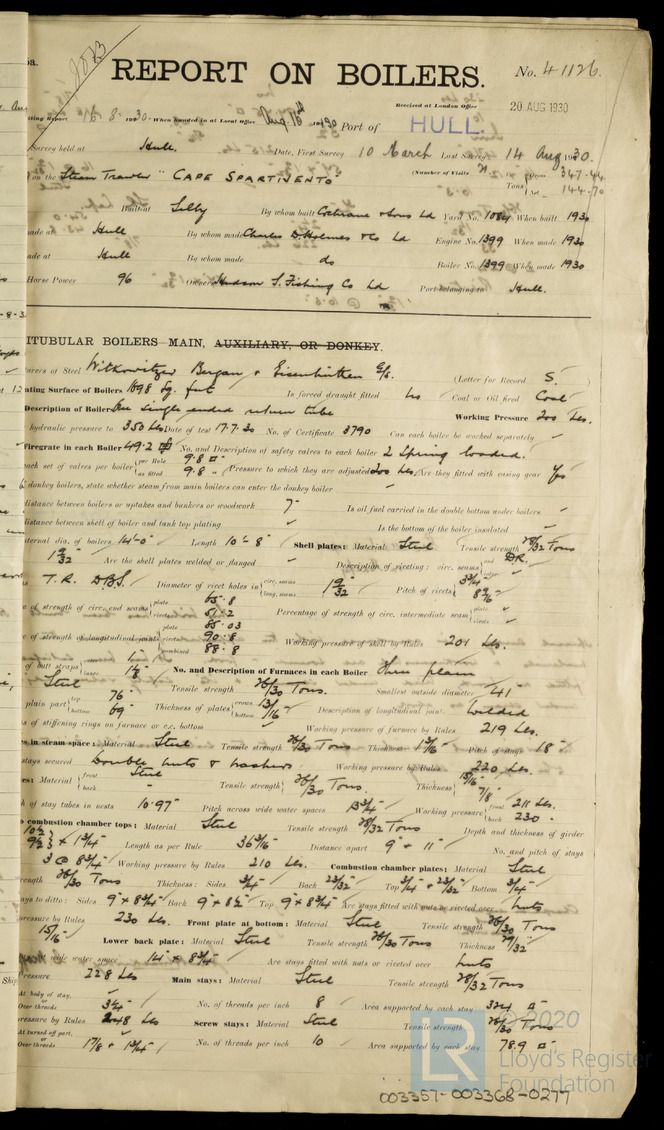 REPORT ON BOILERS.
No. 41126.
Received at London Office
20 AUG 1930
When handed in at Local Office Aug. 18th 1930 Port of HULL.
Survey held at Hull. Date, First Survey 10 March Last Survey 14 Aug 1930.
(Number of Visits
on the Steam Trawler "CAPE SPARTIVENTO" Tons 347.44
144.70
Built at Selby By whom built Cochrane & Sons Ld Yard No. 1084 When built 1930
made at Hull By whom made Charles D. Holmes & Co Ld Engine No. 1399 When made 1930
made at Hull By whom made do Boiler No. 1399 When made 1930
Horse Power 96 Owners Hudson S. Fishing Co Ld Port belonging to Hull.
ITUBULAR BOILERS MAIN, AUXILIARY, OR DONKEY.
of Steel Witkowitzer Bergau & Eisenhütten G/s. (Letter for Record S.)
ating Surface of Boilers 1698 Sq. feet Is forced draught fitted Coal or Oil fired Coal
Description of Boilers One single ended return tube Working Pressure 200 Lbs.
hydraulic pressure to 350 Lbs Date of test 17.7.30 No. of Certificate 3790 Can each boiler be worked separately
Firegrate in each Boiler 49.2 No. and Description of safety valves to each boiler 2 Spring loaded.
each set of valves per boiler per Rule 9.8 as fitted 9.8 Pressure to which they are adjusted 200 Lbs. Are they fitted with easing gear Yes
donkey boilers, state whether steam from main boilers can enter the donkey boiler
distance between boilers or uptakes and bunkers or woodwork 7" Is oil fuel carried in the double bottom under boilers
distance between shell of boiler and tank top plating Is the bottom of the boiler insulated
ternal dia. of boilers 14'-0" Length 10'-8" Shell plates: Material Steel Tensile strength 28/32 Tons
Are the shell plates welded or flanged Description of riveting: circ. seams end DR.
T.R. DBS. Diameter of rivet holes in circ. seams long. seams Pitch of rivets
of strength of circ. end seams plate 65.8 rivets 51.2 Percentage of strength of circ. intermediate seam plate rivets
of strength of longitudinal joint plate 85.03 rivets 90.8 combined 88.8 Working pressure of shell by Rules 201 Lbs.
of butt straps No. and Description of Furnaces in each Boiler Three plain
Steel Tensile strength 26/30 Tons. Smallest outside diameter 41"
plain part top 76" bottom 69" Thickness of plates crown bottom 13/16" Description of longitudinal joint Welded
of stiffening rings on furnace or c.c. bottom Working pressure of furnace by Rules 219 Lbs.
in steam space: Material Steel Tensile strength 26/30 Tons Thickness 1 3/16" Pitch of stays 18"
stays secured Double nuts & washers Working pressure by Rules 220 Lbs.
Material front back Steel Tensile strength 26/30 Tons. Thickness 15/16" 7/8"
of stay tubes in nests 10.97" Pitch across wide water spaces 13 3/4" Working pressure front 211 Lbs. back 230
combustion chamber tops: Material Steel Tensile strength 28/32 Tons Depth and thickness of girder
10 1/2 9 1/2 × 1 3/4" Length as per Rule 36 3/16" Distance apart 9" & 11" No. and pitch of stays
3 @ 8 3/4" Working pressure by Rules 210 Lbs. Combustion chamber plates: Material Steel
strength 26/30 Tons Thickness: Sides 3/4" Back 23/32" Top 3/4" & 23/32" Bottom 3/4"
stays to ditto: Sides 9" × 8 3/4" Back 9" × 8 1/2" Top 9" × 8 3/4" Are stays fitted with nuts or riveted over Nuts
pressure by Rules 230 Lbs. Front plate at bottom: Material Steel Tensile strength 26/30 Tons
15/16" Lower back plate: Material Steel Tensile strength 26/30 Tons Thickness 29/32"
wide water space 14" × 8 3/4" Are stays fitted with nuts or riveted over Nuts
Pressure 228 Lbs Main stays: Material Steel 28/32 Tons
At body of stay, or Over threads 3 1/4" No. of threads per inch 8 Area supported by each stay 324
pressure by Rules 248 Lbs Screw stays: Material Steel Tensile strength 26/30 Tons
At turned off part, or Over threads 1 7/8" & 1 3/4" No. of threads per inch 10 Area supported by each stay 78.9
© 2020
LR
Lloyd's Register
Foundation
003357-003368-0277